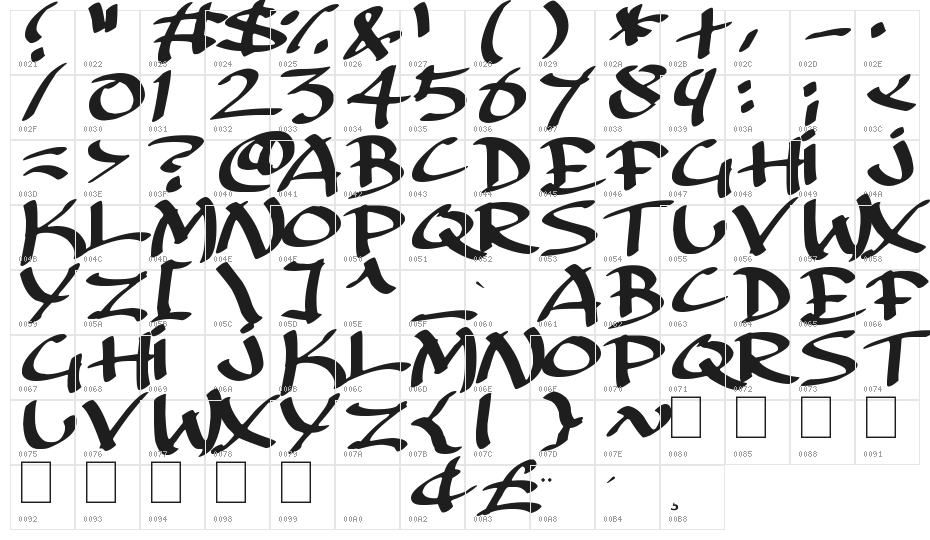 ! " # $ % & ' ( ) * + , - .
0021 0022 0023 0024 0025 0026 0027 0028 0029 002A 002B 002C 002D 002E
/ 0 1 2 3 4 5 6 7 8 9 : ; <
002F 0030 0031 0032 0033 0034 0035 0036 0037 0038 0039 003A 003B 003C
= > ? @ A B C D E F G H i J
003D 003E 003F 0040 0041 0042 0043 0044 0045 0046 0047 0048 0049 004A
K L M N O P Q R S T U V W X
004B 004C 004D 004E 004F 0050 0051 0052 0053 0054 0055 0056 0057 0058
Y Z [ \ ] ^ _ ` A B C D E F
0059 005A 005B 005C 005D 005E 005F 0060 0061 0062 0063 0064 0065 0066
G H i J K L M N O P Q R S T
0067 0068 0069 006A 006B 006C 006D 006E 006F 0070 0071 0072 0073 0074
U V W X Y Z { | } ~
0075 0076 0077 0078 0079 007A 007B 007C 007D 007E 0080 0085 0088 0091
¢ £ ¨ ´ ¸
0092 0093 0094 0098 0099 00A0 00A2 00A3 00A8 00B4 00B8